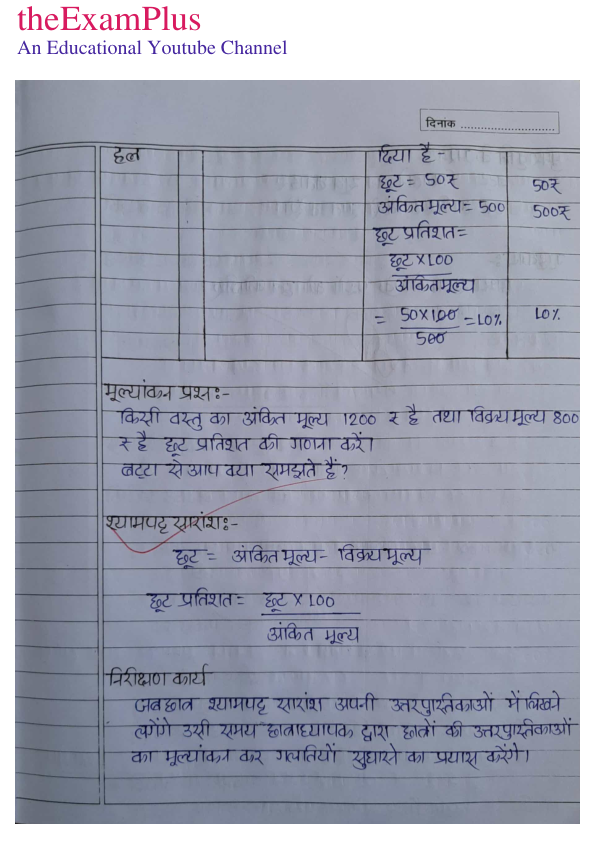 theExamPlus
An Educational Youtube Channel
दिनांक ............................
हल
दिया है -
छूट = 50₹
50₹
अंकित मूल्य = 500
500₹
छूट प्रतिशत =
छूट × 100
अंकित मूल्य
= 50×100 = 10%
10%
500
मूल्यांकन प्रश्न:-
किसी वस्तु का अंकित मूल्य 1200 ₹ है तथा विक्रय मूल्य 800
₹ है छूट प्रतिशत की गणना करें।
बट्टा से आप क्या समझते हैं?
श्यामपट्ट सारांश:-
छूट = अंकित मूल्य - विक्रय मूल्य
छूट प्रतिशत = छूट × 100
अंकित मूल्य
निरीक्षण कार्य
जब छात्र श्यामपट्ट सारांश अपनी उत्तरपुस्तिकाओं में लिखने
लगेंगे उसी समय छात्राध्यापक द्वारा छात्रों की उत्तरपुस्तिकाओं
का मूल्यांकन कर गलतियों सुधारने का प्रयास करेंगे।